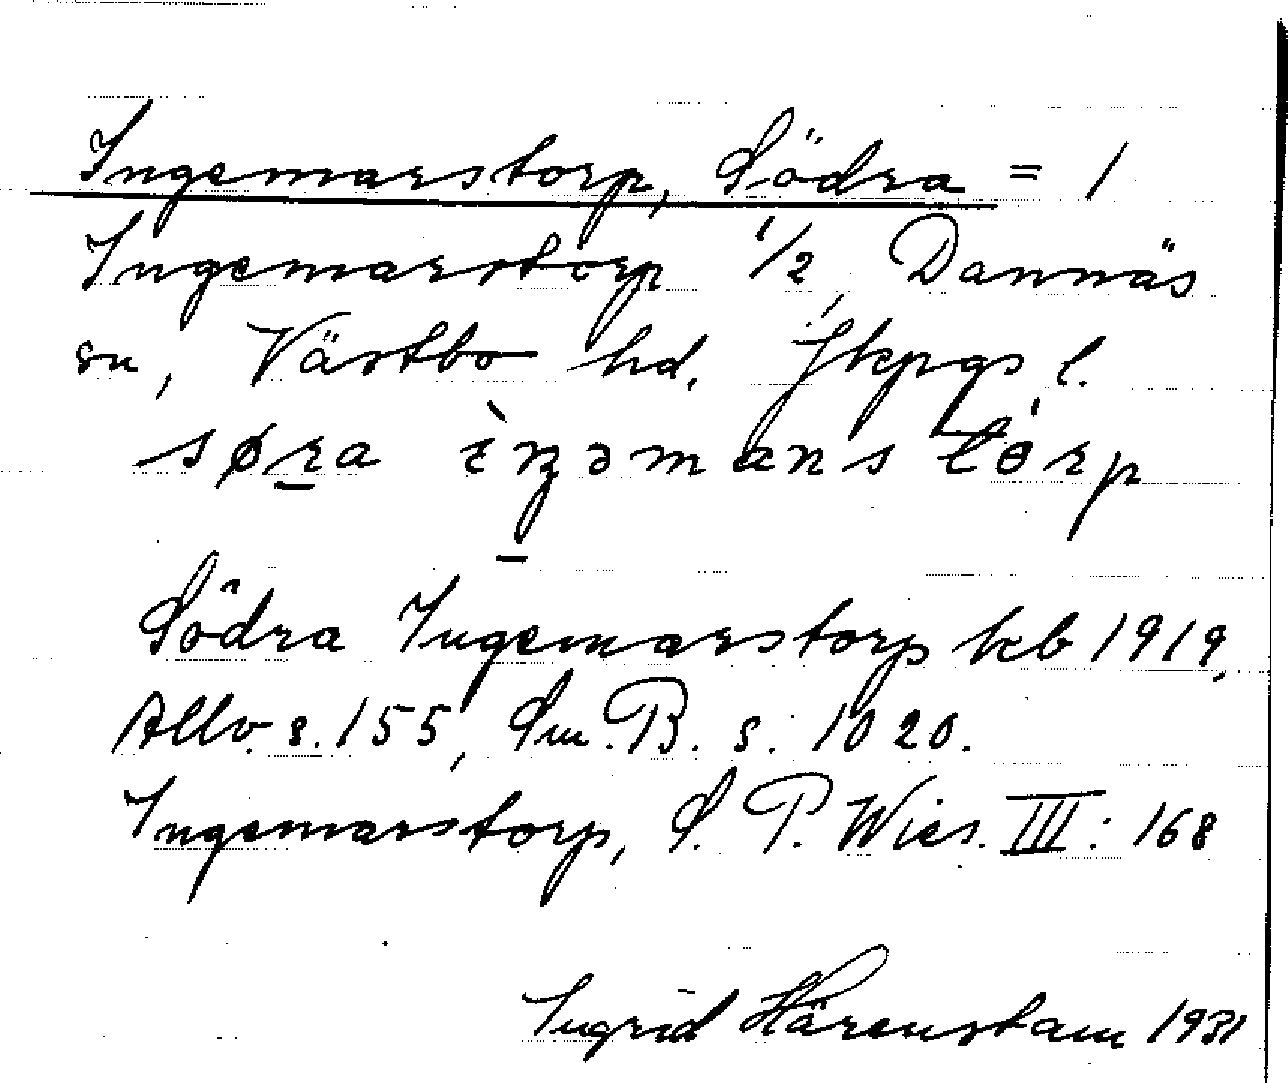 Ingemarstorp, Södra = 1
Ingemarstorp 1/2, Dannäs
sn, Västbo hd. Jkpgs l.
Södra Ingemarstorp kb 1919,
Allv. s. 155, Sm. B. s. 1020.
Ingemarstorp, S. P. Wies. III: 168
Ingrid Härenstam 1931